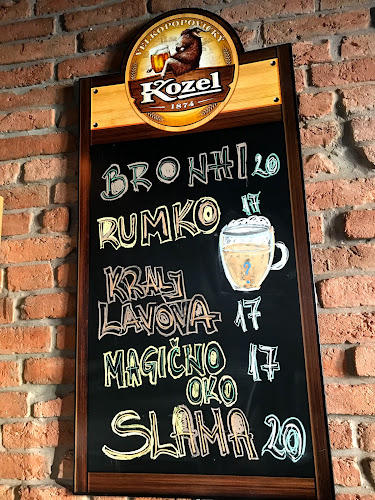 VELKOPOPOVICKÝ
Kozel
1874
BRONHI 20
RUMKO 17
KRALJ
LAVOVA 17
MAGIČNO 17
OKO
SLAMA 20